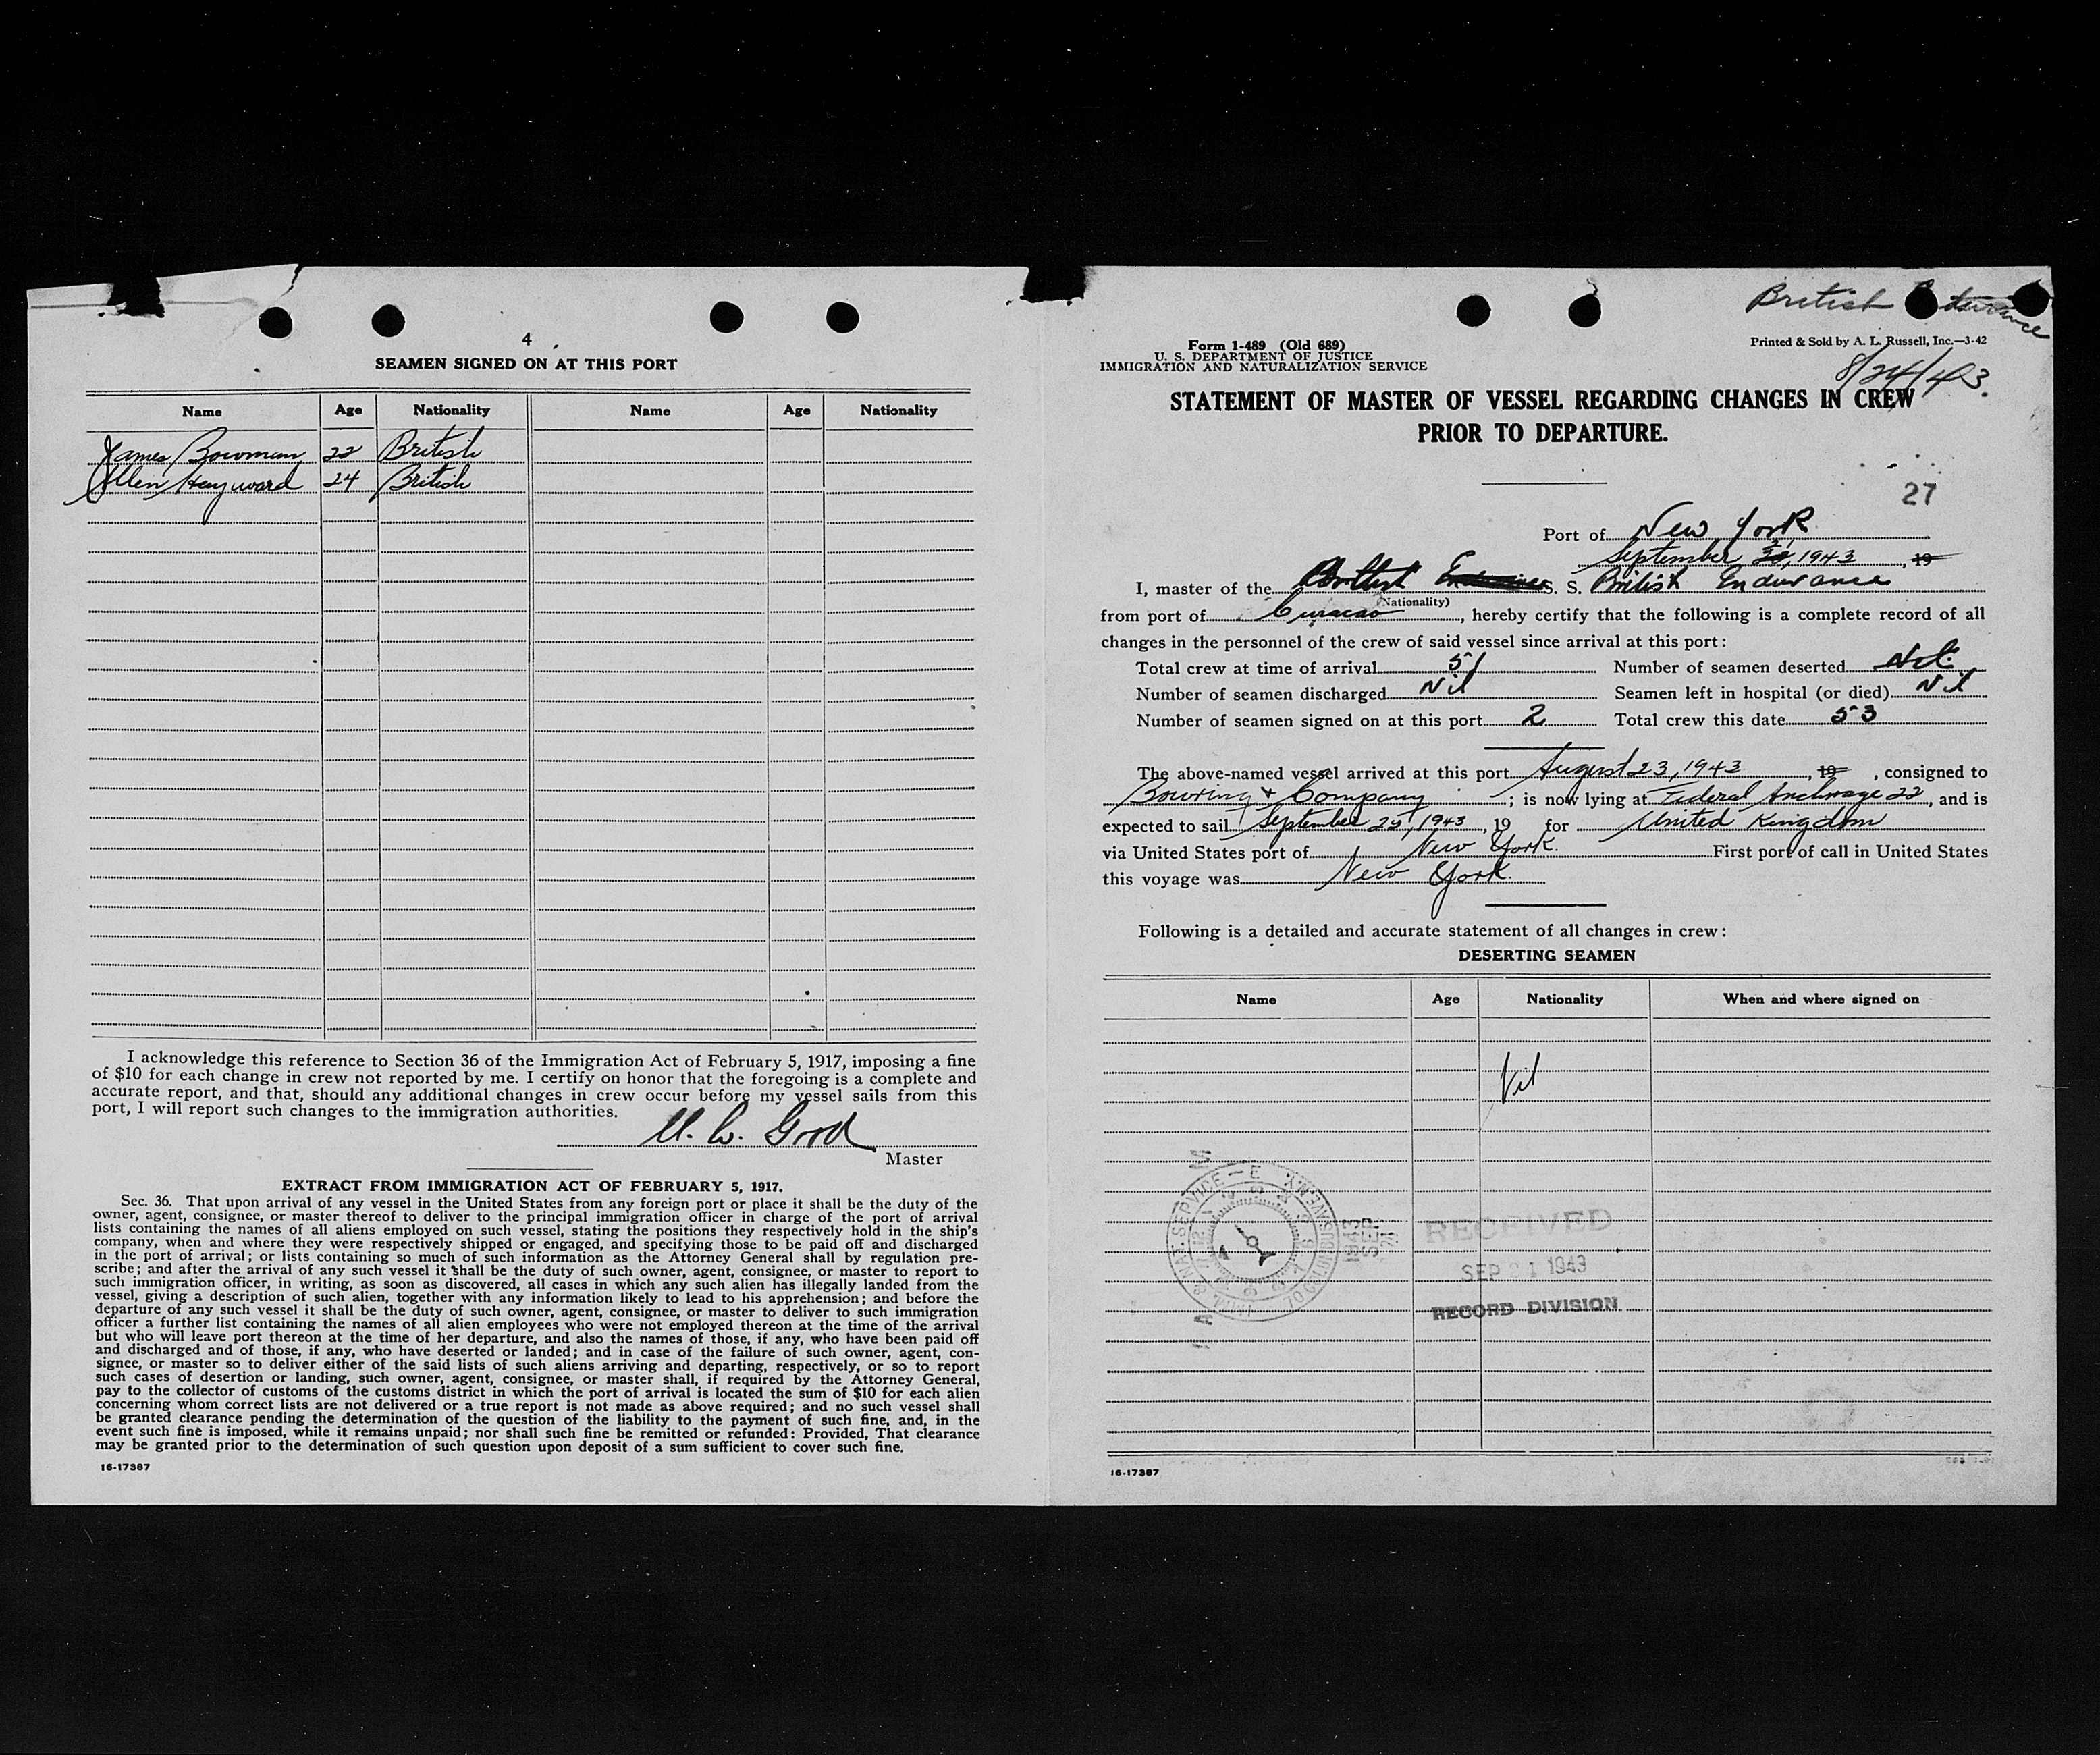 4
SEAMEN SIGNED ON AT THIS PORT
Name Age Nationality Name Age Nationality
James Bowman 22 British
Allen Hayward 24 British
I acknowledge this reference to Section 36 of the Immigration Act of February 5, 1917, imposing a fine
of $10 for each change in crew not reported by me. I certify on honor that the foregoing is a complete and
accurate report, and that, should any additional changes in crew occur before my vessel sails from this
port, I will report such changes to the immigration authorities.
W. Good
Master
EXTRACT FROM IMMIGRATION ACT OF FEBRUARY 5, 1917.
Sec. 36. That upon arrival of any vessel in the United States from any foreign port or place it shall be the duty of the
owner, agent, consignee, or master thereof to deliver to the principal immigration officer in charge of the port of arrival
lists containing the names of all aliens employed on such vessel, stating the positions they respectively hold in the ship's
company, when and where they were respectively shipped or engaged, and specifying those to be paid off and discharged
in the port of arrival; or lists containing so much of such information as the Attorney General shall by regulation pre-
scribe; and after the arrival of any such vessel it shall be the duty of such owner, agent, consignee, or master to report to
such immigration officer, in writing, as soon as discovered, all cases in which any such alien has illegally landed from the
vessel, giving a description of such alien, together with any information likely to lead to his apprehension; and before the
departure of any such vessel it shall be the duty of such owner, agent, consignee, or master to deliver to such immigration
officer a further list containing the names of all alien employees who were not employed thereon at the time of the arrival
but who will leave port thereon at the time of her departure, and also the names of those, if any, who have been paid off
and discharged and of those, if any, who have deserted or landed; and in case of the failure of such owner, agent, con-
signee, or master so to deliver either of the said lists of such aliens arriving and departing, respectively, or so to report
such cases of desertion or landing, such owner, agent, consignee, or master shall, if required by the Attorney General,
pay to the collector of customs of the customs district in which the port of arrival is located the sum of $10 for each alien
concerning whom correct lists are not delivered or a true report is not made as above required; and no such vessel shall
be granted clearance pending the determination of the question of the liability to the payment of such fine, and, in the
event such fine is imposed, while it remains unpaid; nor shall such fine be remitted or refunded: Provided, That clearance
may be granted prior to the determination of such question upon deposit of a sum sufficient to cover such fine.
16-17387
British
Form 1-489 (Old 689)
U. S. DEPARTMENT OF JUSTICE
IMMIGRATION AND NATURALIZATION SERVICE
Printed & Sold by A. L. Russell, Inc.—3-42
8/24/43.
STATEMENT OF MASTER OF VESSEL REGARDING CHANGES IN CREW
PRIOR TO DEPARTURE.
27
Port of New York
September 21, 1943, 19
I, master of the British S. S. British Endurance
(Nationality)
from port of Curacao, hereby certify that the following is a complete record of all
changes in the personnel of the crew of said vessel since arrival at this port:
Total crew at time of arrival 51 Number of seamen deserted Nil
Number of seamen discharged Nil Seamen left in hospital (or died) Nil
Number of seamen signed on at this port 2 Total crew this date 53
The above-named vessel arrived at this port August 23, 1943, 19 , consigned to
Bowring & Company; is now lying at Federal Anchorage 22, and is
expected to sail September 1943, 19 for United Kingdom
via United States port of New York. First port of call in United States
this voyage was New York.
Following is a detailed and accurate statement of all changes in crew:
DESERTING SEAMEN
Name Age Nationality When and where signed on
Nil
RECEIVED
SEP 21 1943
RECORD DIVISION
16-17387